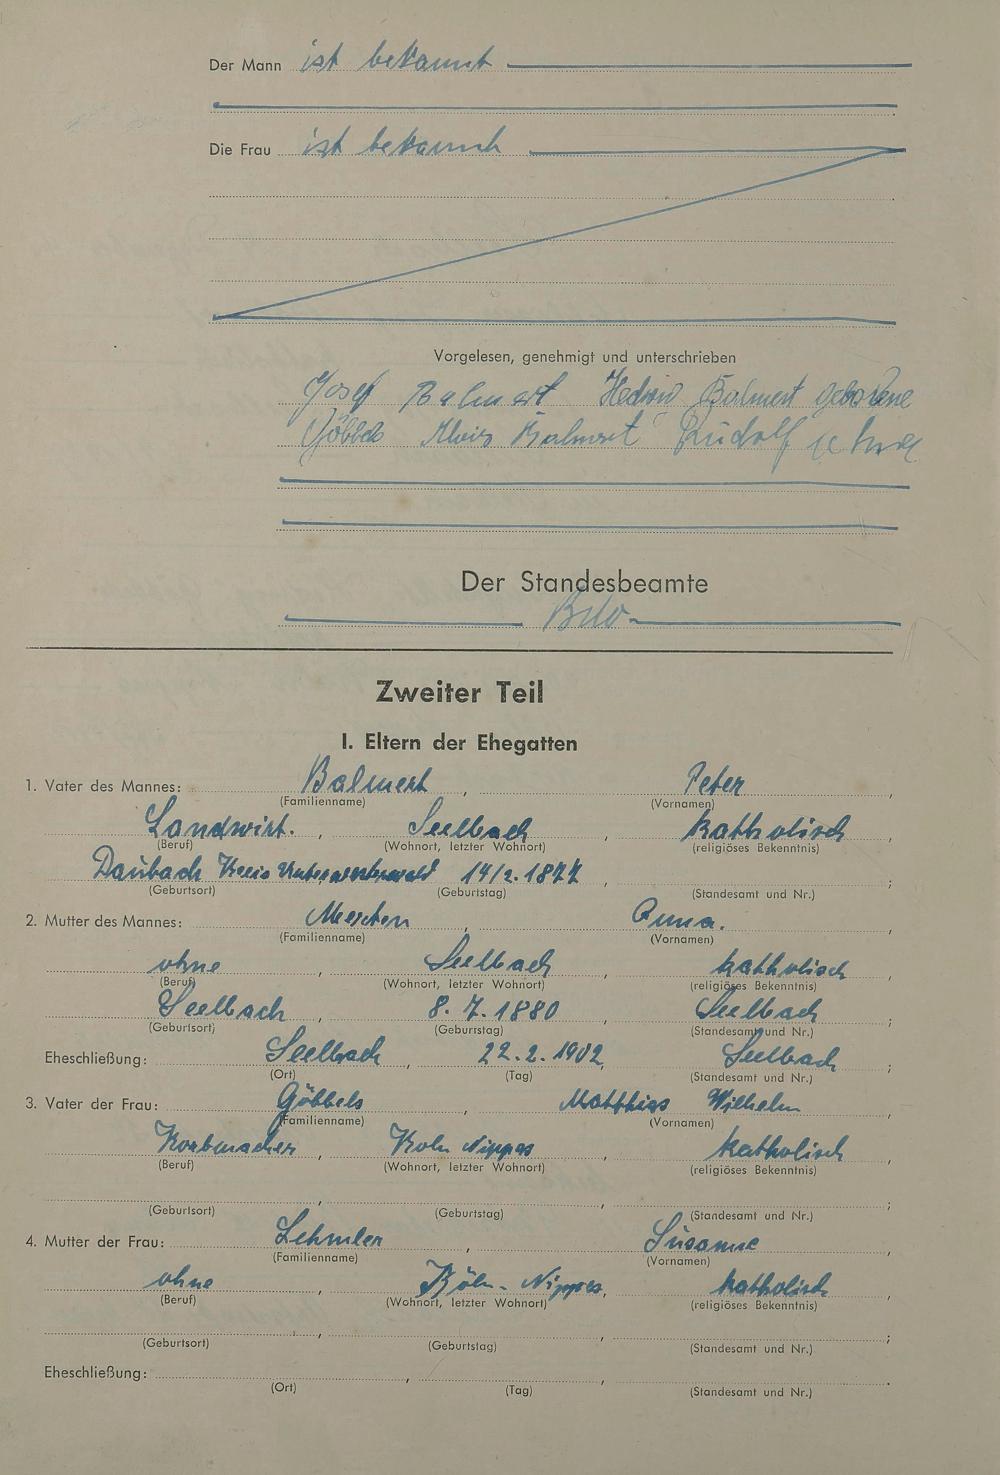 Der Mann ist bekannt
Die Frau ist bekannt
Vorgelesen, genehmigt und unterschrieben
Josef Balmert Hedwig Balmert geborene
Göbbels Alois Balmert Rudolf
Der Standesbeamte
Zweiter Teil
I. Eltern der Ehegatten
1. Vater des Mannes: Balmert, Peter,
(Familienname) (Vornamen)
Landwirt., Seelbach, katholisch
(Beruf) (Wohnort, letzter Wohnort) (religiöses Bekenntnis)
Daubach Kreis Unterwesterwald 14/2.1877, ;
(Geburtsort) (Geburtstag) (Standesamt und Nr.)
2. Mutter des Mannes: Merten, Anna.,
(Familienname) (Vornamen)
ohne, Seelbach, katholisch
(Beruf) (Wohnort, letzter Wohnort) (religiöses Bekenntnis)
Seelbach, 8.7.1880, Seelbach;
(Geburtsort) (Geburtstag) (Standesamt und Nr.)
Eheschließung: Seelbach, 22.2.1902, Seelbach;
(Ort) (Tag) (Standesamt und Nr.)
3. Vater der Frau: Göbbels, Matthias Wilhelm,
(Familienname) (Vornamen)
Korbmacher, Köln Nippes, katholisch,
(Beruf) (Wohnort, letzter Wohnort) (religiöses Bekenntnis)
, , ;
(Geburtsort) (Geburtstag) (Standesamt und Nr.)
4. Mutter der Frau: Lehmler, Susanne,
(Familienname) (Vornamen)
ohne, Köln-Nippes, katholisch,
(Beruf) (Wohnort, letzter Wohnort) (religiöses Bekenntnis)
, , ;
(Geburtsort) (Geburtstag) (Standesamt und Nr.)
Eheschließung: , , .
(Ort) (Tag) (Standesamt und Nr.)